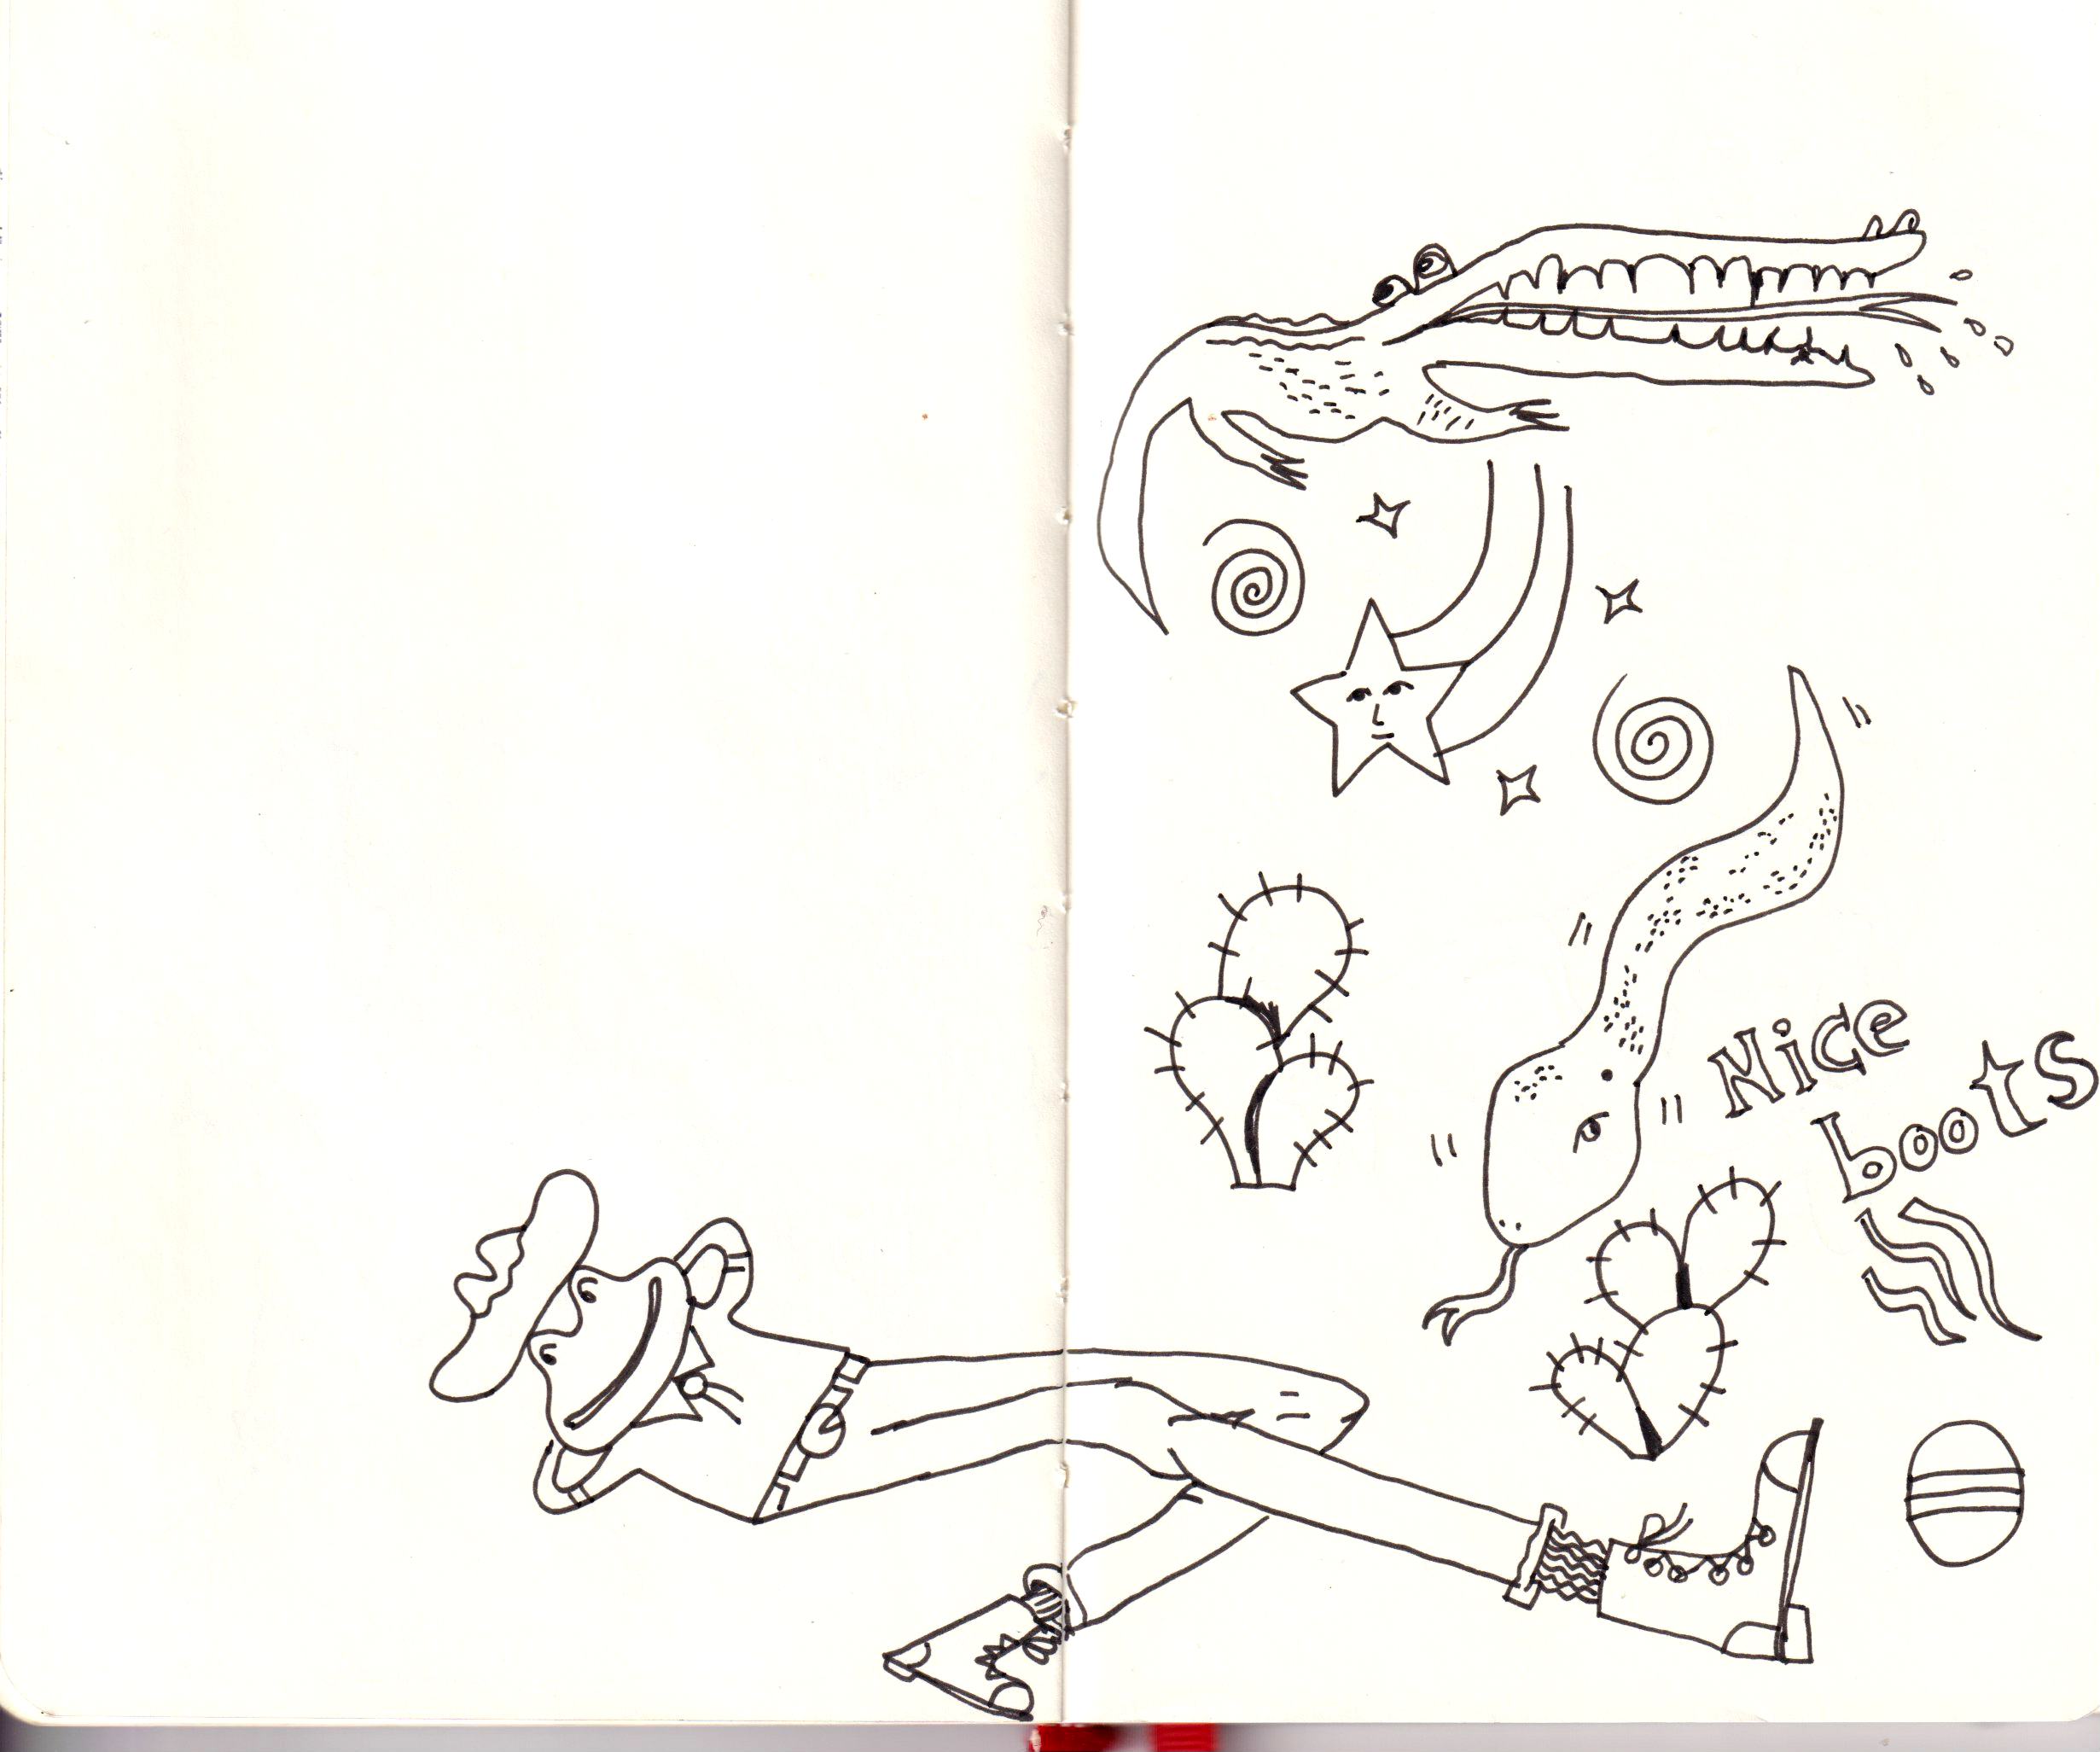 Nice
boots